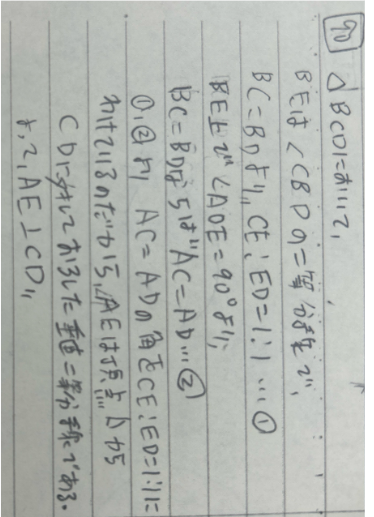 90 △BCDにおいて、
BEは∠CBDの二等分線で、
BC=BDより、CE:ED=1:1…①
BE上で∠AOE=90°より、
BC=BDならば AC=AD…②
①,②より AC=ADの角をCE:ED=1:1に
わけているのだから、AEは頂点Aから
CDに対しておろした垂直二等分線である。
よって、AE⊥CD〃